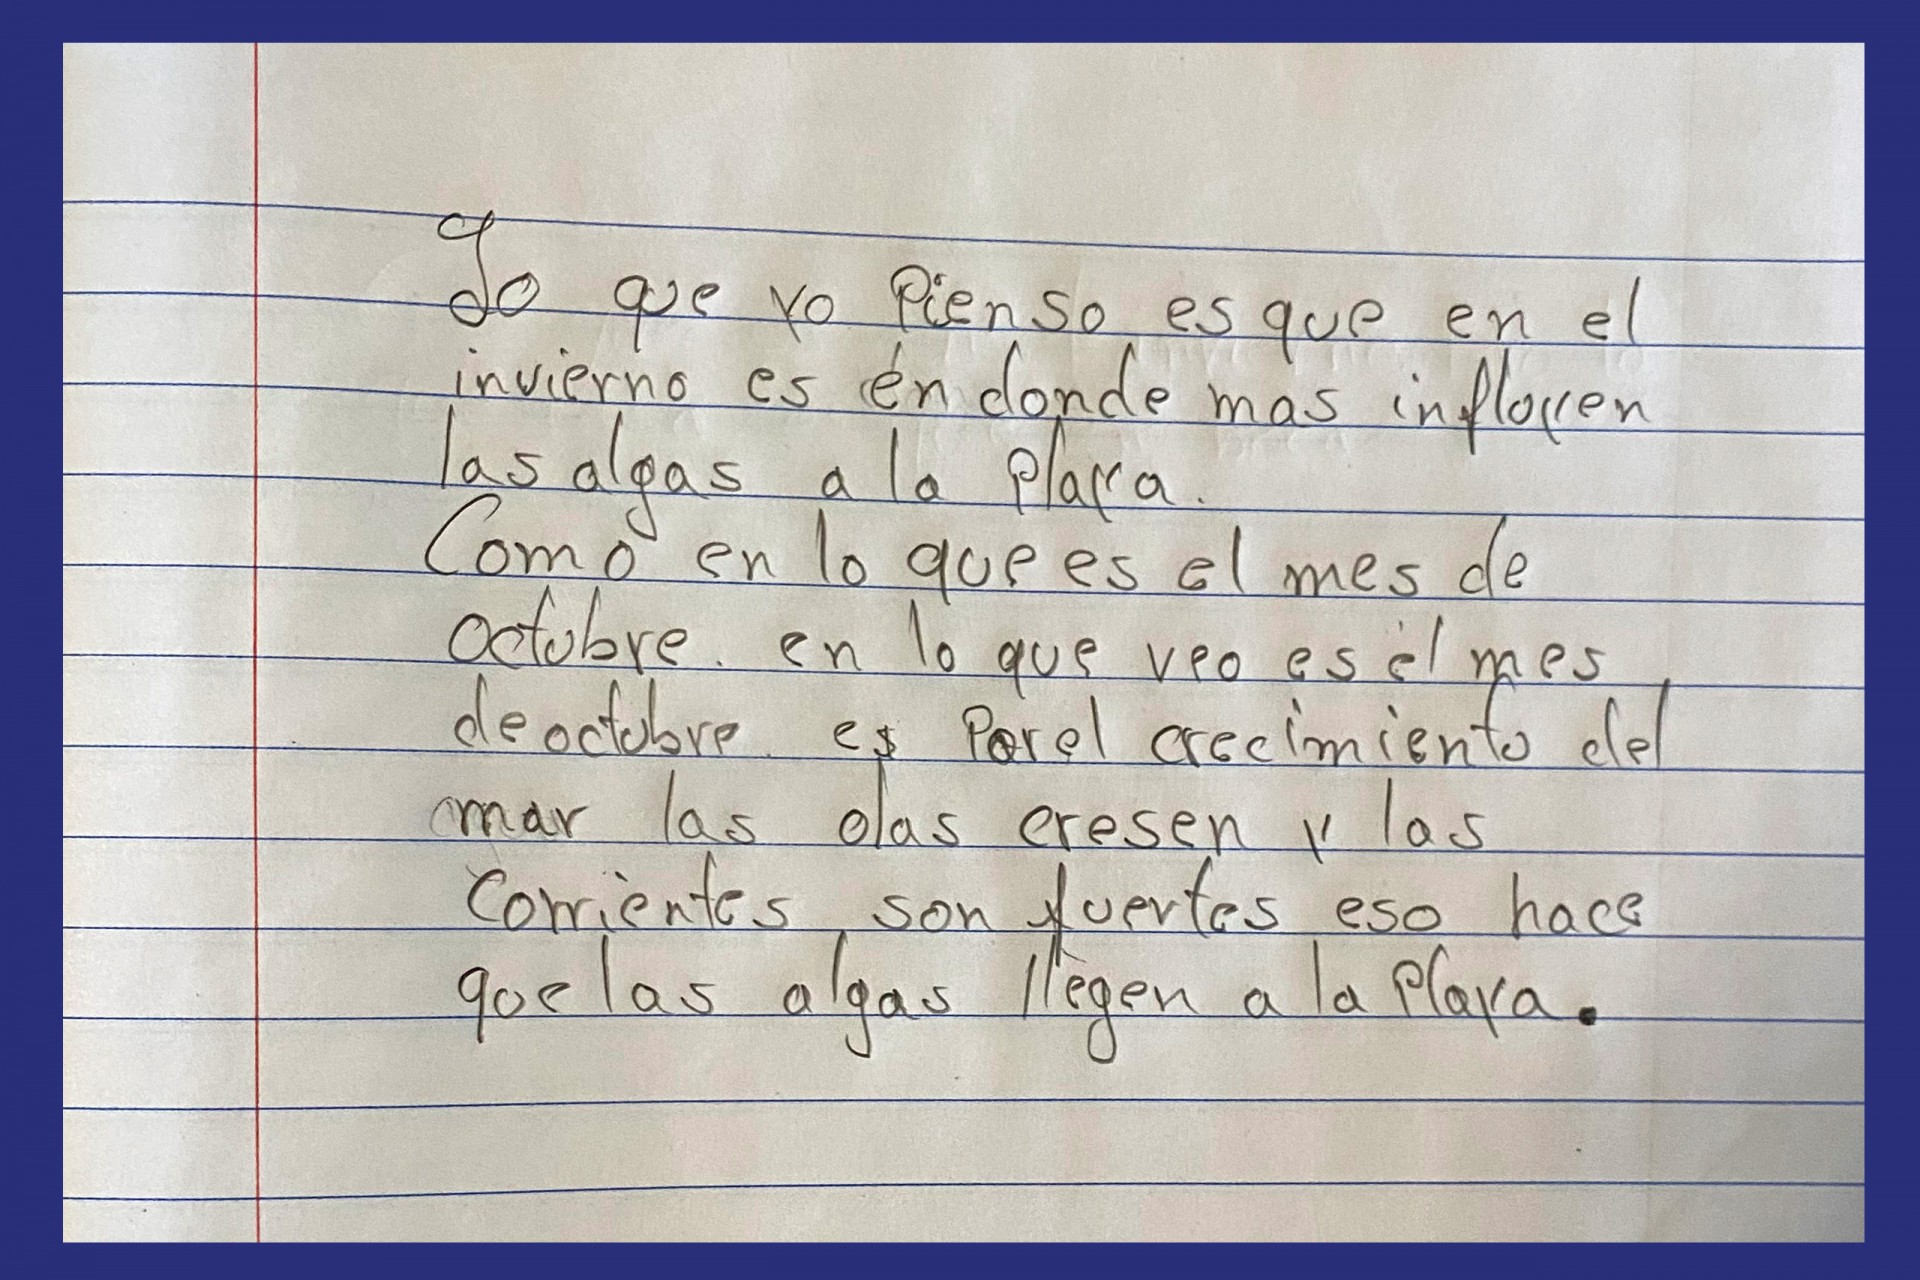 Lo que yo Pienso es que en el
invierno es en donde mas influyen
las algas a la Playa.
Como en lo que es el mes de
octubre. en lo que veo es el mes
de octubre. es Por el crecimiento del
mar las olas cresen y las
Corrientes son fuertes eso hace
que las algas llegen a la Playa.